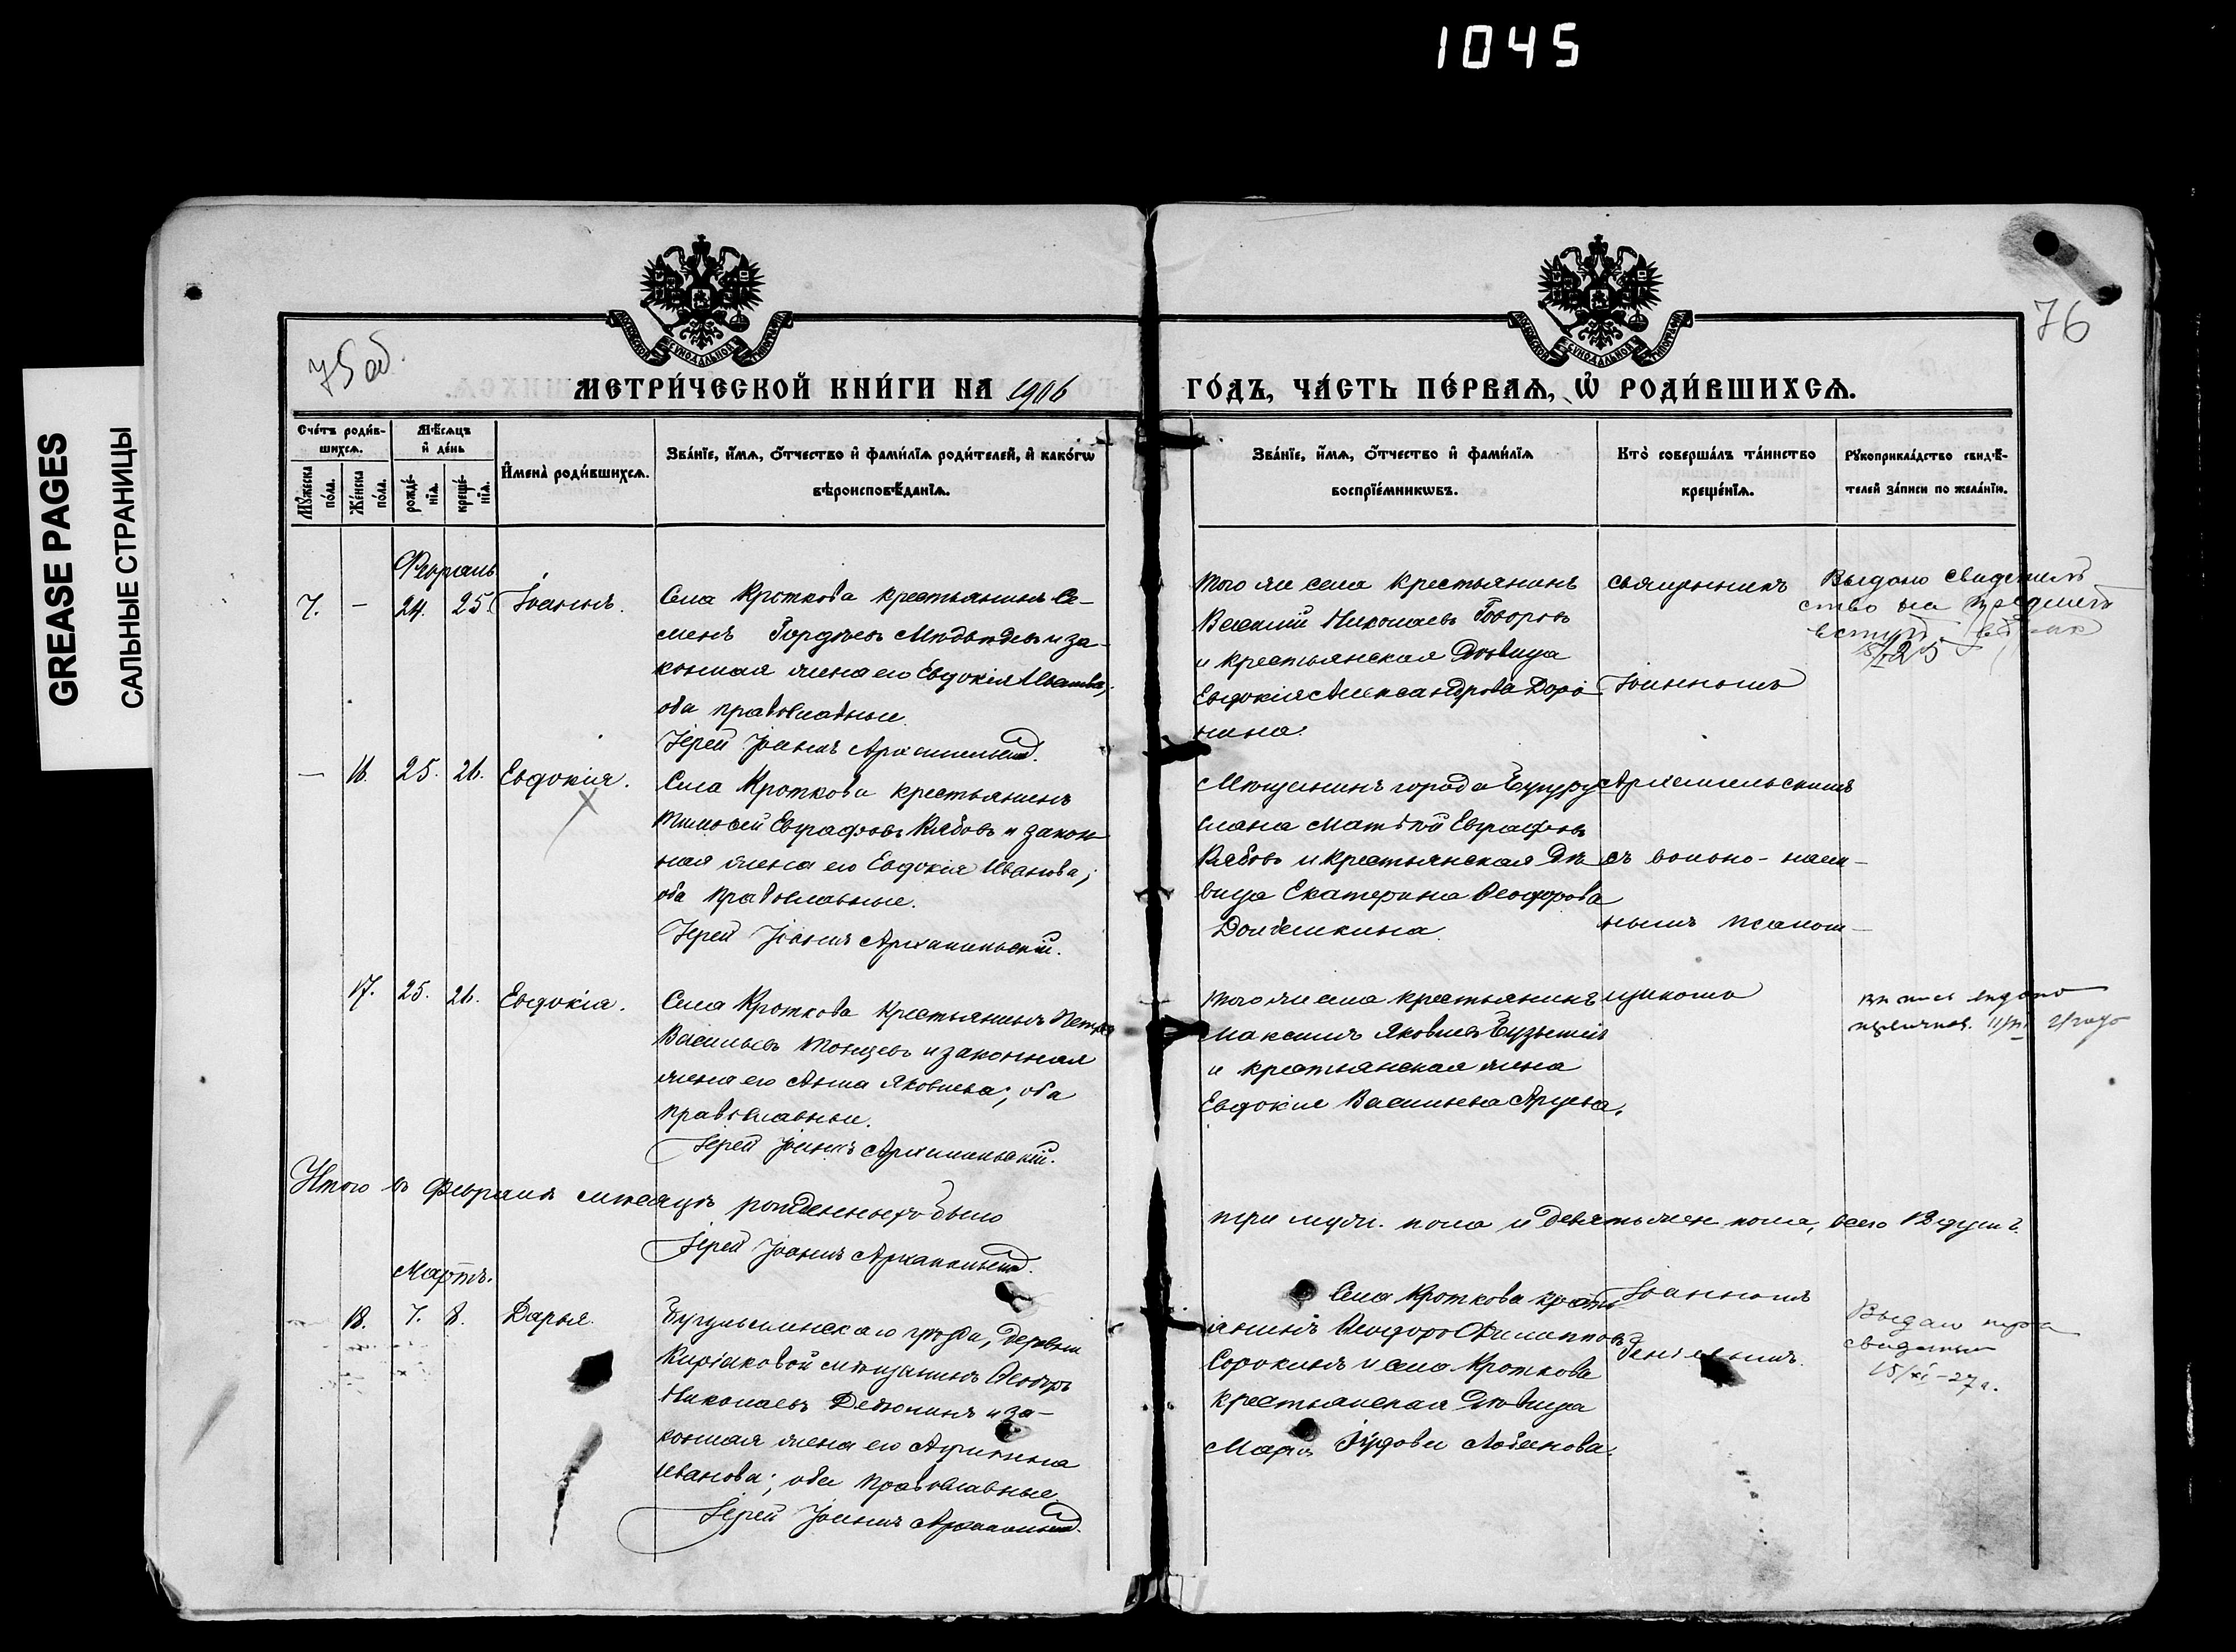 1045
GREASE PAGES
САЛЬНЫЕ СТРАНИЦЫ
75 об.
76
МЕТРИ́ЧЕСКОЙ КНИ́ГИ НА 1906
ГО́ДЪ, ЧА́СТЬ ПЕ́РВАѦ, Ѡ҆ РОДИ́ВШИХСѦ.
Сче́тъ роди́в-
шихсѧ.
Мѣ́сѧцъ
и҆ де́нь
Мꙋ́жеска
по́ла.
Же́нска
по́ла.
рожде́-
нїѧ.
креще́-
нїѧ.
И҆мена̀ роди́вшихсѧ.
Зва́нїе, и҆́мѧ, ѻ҆́тчество и҆ фами́лїѧ роди́телей, и҆ како́гѡ
вѣроисповѣ́данїѧ.
Зва́нїе, и҆́мѧ, ѻ҆́тчество и҆ фами́лїѧ
воспрїе́мникѡвъ.
Кто̀ соверша́лъ та́инство
креще́нїѧ.
Рꙋкоприкла́дство свидѣ́-
телей за́писи по жела́нїю.
Февраль
7. — 24. 25. Іоаннъ.
Села Кроткова крестьянинъ Се-
менъ Гордѣевъ Медвѣдевъ и за-
конная жена его Евдокія Иванова;
оба православные.
Іерей Іоаннъ Архангельскій.
того же села крестьянинъ
Василій Николаевъ Говоровъ
и крестьянская дѣвица
Евдокія Александрова Доро-
нина.
священникъ
Іоанномъ
Выдано свидѣтель
ство на предметъ
— 16. 25. 26. Евдокія.
Села Кроткова крестьянинъ
Тимофей Евграфовъ Рябовъ и закон-
ная жена его Евдокія Иванова;
оба православные.
Іерей Іоаннъ Архангельскій.
Мѣщанинъ города Бугуру
слана Матвѣй Евграфовъ
Рябовъ и крестьянская дѣ
вица Екатерина Ѳеодорова
Архангельскимъ
съ вольно-наем-
нымъ псалом-
17. 25. 26. Евдокія.
Села Кроткова крестьянинъ Петръ
Васильевъ и законная
жена его Анна Яковлева; оба
православные.
Іерей Іоаннъ Архангельскій.
того же села крестьянинъ
Максимъ Яковлевъ
и крестьянская жена
Евдокія Васильева
щикомъ
Итого въ Февралѣ мѣсяцѣ рожденныхъ было
три муж. пола и девять жен. пола, всего 12 душъ.
Іерей Іоаннъ Архангельскій.
Мартъ.
18. 7. 8. Дарья.
Бугульминскаго уѣзда, деревни
Киріаковой мѣщанинъ Ѳеодоръ
Николаевъ и за-
конная жена его Агрипина
Иванова; оба православные.
Іерей Іоаннъ Архангельскій.
Села Кроткова кресть
янинъ Ѳеодоръ Филипповъ
Сорокинъ и села Кроткова
крестьянская дѣвица
Марія Лобанова.
Іоанномъ
Выдан
15/XI-27 г.